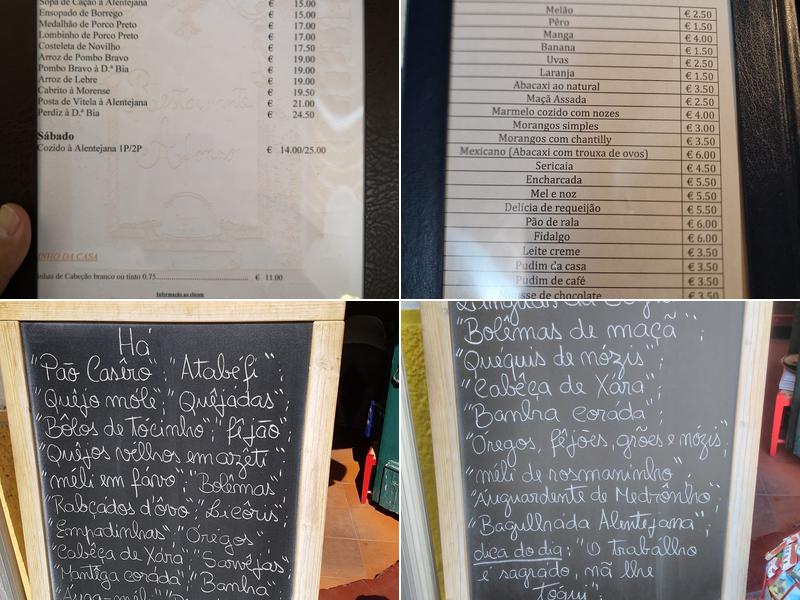 Sopa de Cação à Alentejana € 15.00
Ensopado de Borrego € 15.00
Medalhão de Porco Preto € 17.00
Lombinho de Porco Preto € 17.00
Costeleta de Novilho € 17.50
Arroz de Pombo Bravo € 19.00
Pombo Bravo à D.ª Bia € 19.00
Arroz de Lebre € 19.00
Cabrito à Morense € 19.50
Posta de Vitela à Alentejana € 21.00
Perdiz à D.ª Bia € 24.50
Sábado
Cozido à Alentejana 1P/2P € 14.00/25.00
Restaurante
Afonso
INHO DA CASA
inhas de Cabeção branco ou tinto 0.75 € 11.00
Informação ao cliente
Melão € 2.50
Pêro € 1.50
Manga € 4.00
Banana € 1.50
Uvas € 2.50
Laranja € 1.50
Abacaxi ao natural € 3.50
Maçã Assada € 2.50
Marmelo cozido com nozes € 4.00
Morangos simples € 3.00
Morangos com chantilly € 3.50
Mexicano (Abacaxi com trouxa de ovos) € 6.00
Sericaia € 4.50
Encharcada € 5.50
Mel e noz € 5.50
Delícia de requeijão € 5.50
Pão de rala € 6.00
Fidalgo € 6.00
Leite creme € 3.50
Pudim da casa € 3.50
Pudim de café € 3.50
sse de chocolate € 3.50
Há
"Pão Casêro"; "Atabéfi";
"Quêjo móle"; "Quêjadas";
"Bôlos de Tòcinho"; "fêjão";
"Quêjos vélhos em azêti
"méli em fávo"; "Bolêmas"
"Rabçados d'óvo; Licôris";
"Empadinhas"; "Óregos"
"Cabêça de Xára"; "Sarvêjas"
"Mantêga coráda"; "Banha"
"Bolêmas de maçã";
"Quéquis de nózis";
"Cabêça de Xára";
"Banhra coráda";
"Óregos, fêjões, grões e nózis;
"méli de rosmaninho"
"Auguardente de Medrônho"
"Bagulhada Alentejana";
dica do dia: "O trabálho
é sagrado, nã lhe
toqui"